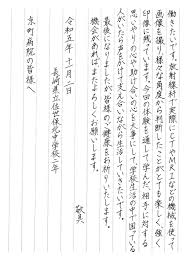 働きたいです。放射線科で実際にCTやMRIなどの機械を使って
画像を撮り、様々な角度から判断したことがとても楽しく強く
印象に残っています。今回の体験を通して学んだ、相手に対する
思いやりの心や助け合いのことを大事にして、学校生活の中で困っている
人がいたら声をかけて支え合いながら生活していきたいです。
最後になりましたが皆様のご健康をお祈りいたします。
機会があればまたよろしくお願いします。
敬具
令和五年十一月一日
長崎県立佐世保北中学校二年
京町病院の皆様へ